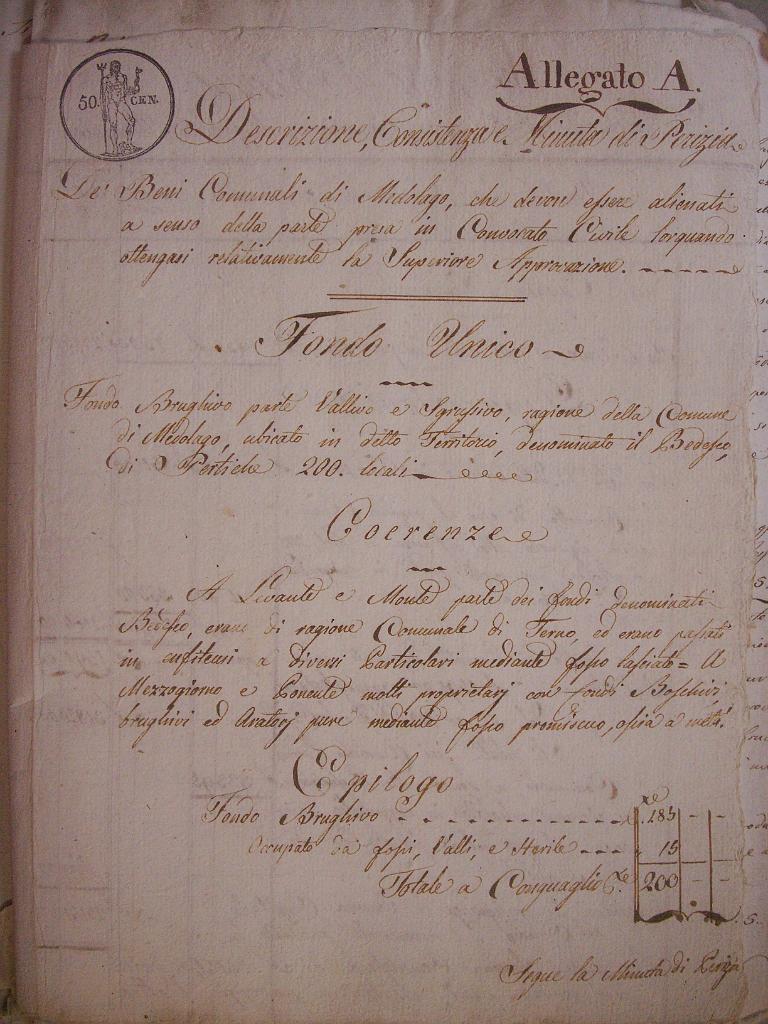 Allegato A.
50. CEN.
Descrizione, Consistenza e Minuta di Perizia
De' Beni Comunali di Medolago, che devon essere alienati
a senso della parte presa in Convocato Civile lorquando
ottengasi relativamente la Superiore Approvazione.
Fondo Unico
Fondo Brughivo parte Vallivo e Sgrussivo, ragione della Comune
di Medolago, ubicato in detto Territorio, denominato il Bedesco,
di Pertiche 200. locali
Coerenze
A Levante e Monte parte dei fondi denominati
Bedesco, erano di ragione Comunale di Terno, ed erano passati
in enfiteusi a diversi Particolari mediante fosso lasciato = A
Mezzogiorno e Ponente molti proprietarj con fondi Boschivi
brughivi ed Aratorj pure mediante fosso promiscuo, ossia a metà.
Epilogo
Fondo Brughivo 185
Occupato da fossi, Valli, e Sterile 15
Totale a Conguaglio Pe. 200
Segue la Minuta di Perizia